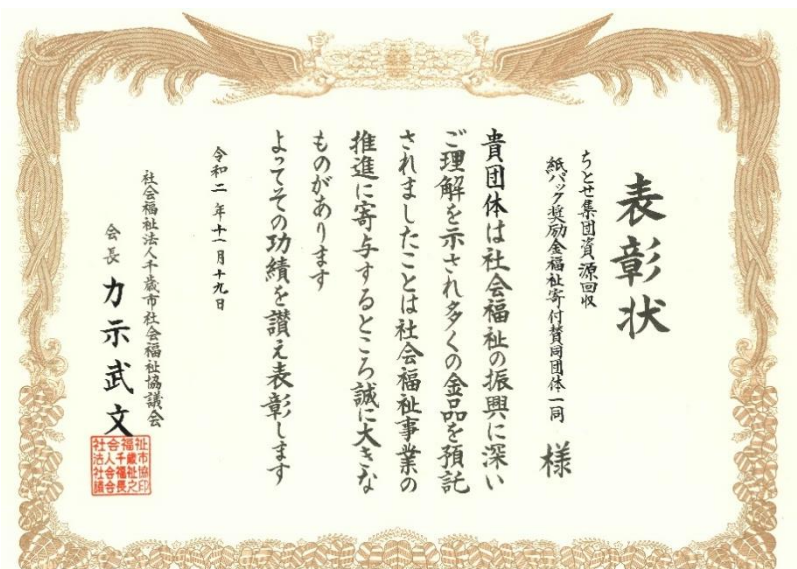 表彰状
ちとせ集団資源回収
紙パック奨励金福祉寄付賛同団体一同 様
貴団体は社会福祉の振興に深い
ご理解を示され多くの金品を預託
されましたことは社会福祉事業の
推進に寄与するところ誠に大きな
ものがあります
よってその功績を讃え表彰します
令和二年十一月十九日
社会福祉法人千歳市社会福祉協議会
会長 力示武文